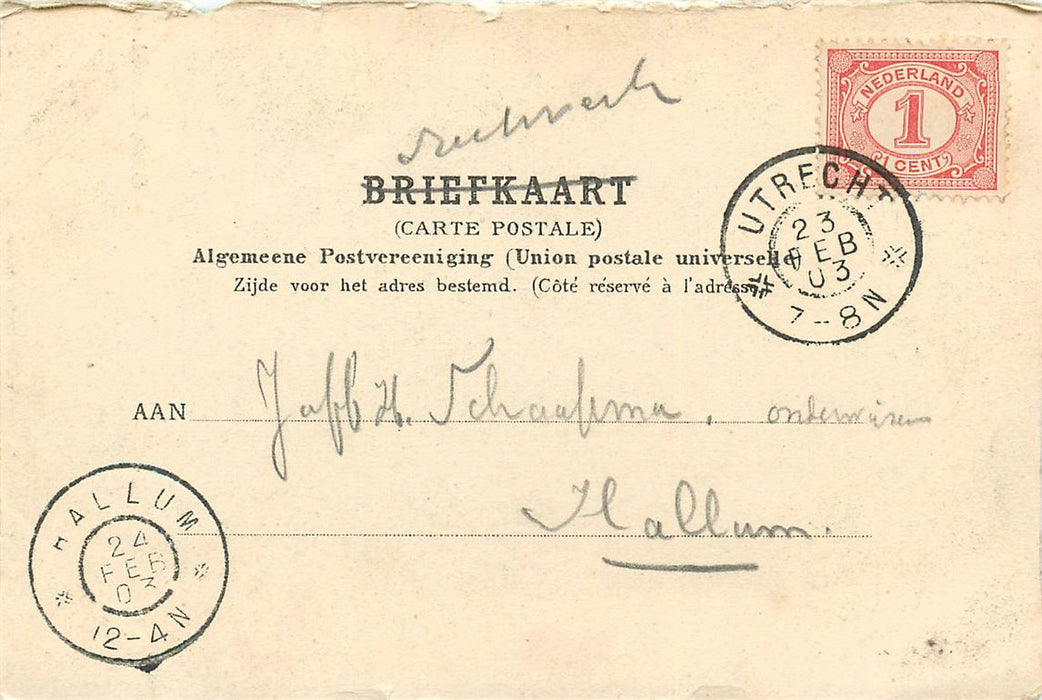 NEDERLAND
1
1 CENT
UTRECHT
23
FEB
03
7-8N
BRIEFKAART
(CARTE POSTALE)
Algemeene Postvereeniging (Union postale universelle)
Zijde voor het adres bestemd. (Côté réservé à l'adresse)
AAN H. Schaafsma.
Hallum.
HALLUM
24
FEB
03
12-4N